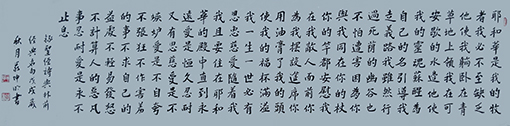 耶和華是我的牧
者我必不至缺乏
他使我躺卧在青
草地上領我在可
安歇的水邊他使
我的靈魂甦醒為
自己的名引導我
走義路我雖然行
過死蔭的幽谷也
不怕遭害因為你
與我同在你的杖
你的竿都安慰我
在我敵人面前你
為我擺設筵席你
用油膏了我的頭
使我的福杯滿溢
我一生一世必有
恩惠慈愛隨着我
我且要住在耶和
華的殿中直到永
遠愛是恆久忍耐
又有恩慈愛是不
嫉妒愛是不自誇
不張狂不作害羞
益處不輕易發怒
不計算人的惡凡
事忍耐愛是永不
止息
聖經詩與林前
經典名句戊戌
秋月書